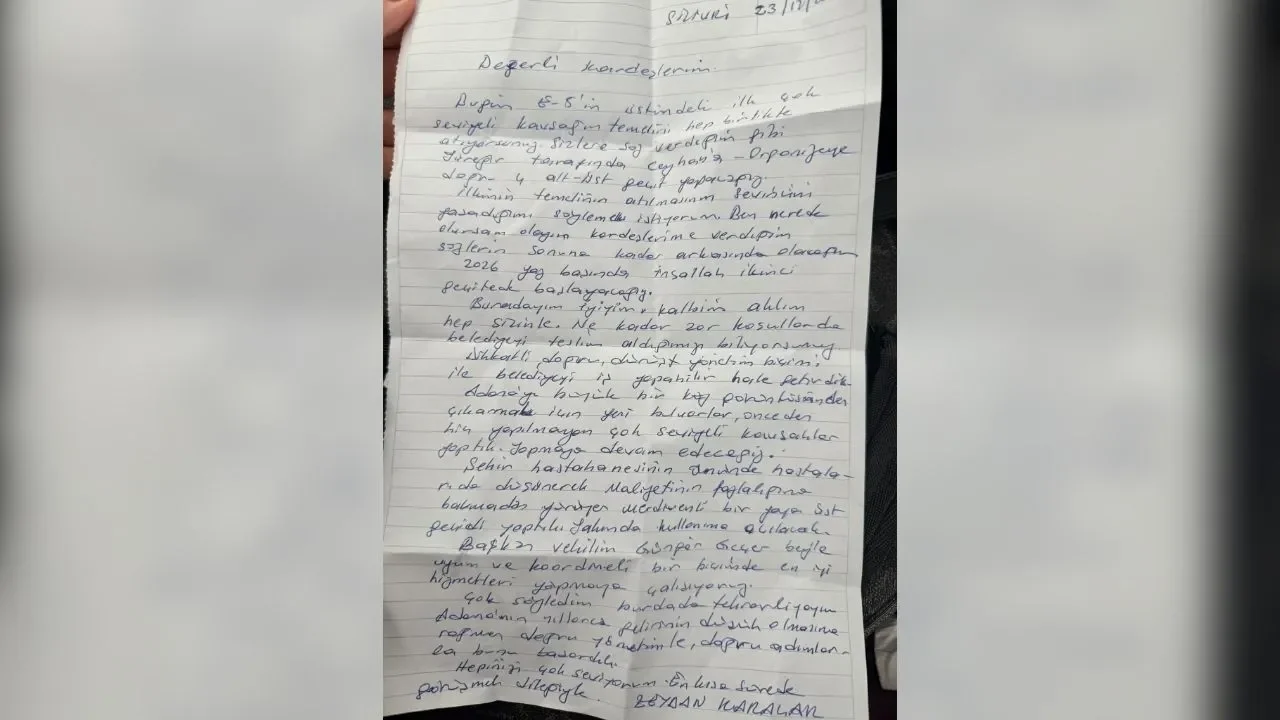 SİLİVRİ 23/12/
Değerli kardeşlerim.
Bugün E-5'in üstündeki ilk çok
seviyeli kavşağın temelini hep birlikte
atıyorsunuz. Sizlere söz verdiğim gibi
Yüreğir tarafında Ceyhan'a - Organizeye
doğru 4 alt-üst geçit yapacağız.
İlkinin temelinin atılmasının sevincini
yaşadığımı söylemek istiyorum. Ben nerede
olursam olayım kardeşlerime verdiğim
sözlerin sonuna kadar arkasında olacağım
2026 yaz başında inşallah ikinci
geçitede başlayacağız.
Buradayım iyiyim, kalbim aklım
hep sizinle. Ne kadar zor koşullarda
belediyeyi teslim aldığımızı biliyorsunuz.
Dikkatli, doğru, dürüst yönetim biçimi
ile belediyeyi iş yapabilir hale getirdik
Adana'yı büyük bir köy görüntüsünden
çıkarmak için yeni bulvarlar, önceden
hiç yapılmayan çok seviyeli kavşaklar
yaptık. Yapmaya devam edeceğiz.
Şehir hastahanesinin önünde hastala-
rıda düşünerek Maliyetinin fazlalığına
bakmadan yürüyen merdivenli bir yaya üst
geçidi yaptık. Yakında kullanıma açılacak.
Başkan vekilim Güngör Geçer beyle
uyum ve koordineli bir biçimde en iyi
hizmetleri yapmaya çalışıyoruz.
Çok söyledim burdada tekrarlıyayım
Adana'nın yıllarca gelirinin düşük olmasına
rağmen doğru yönetimle, doğru adımlar-
la bunu başardık.
Hepinizi çok seviyorum. En kısa sürede
görüşmek dileğiyle. ZEYDAN KARALAR